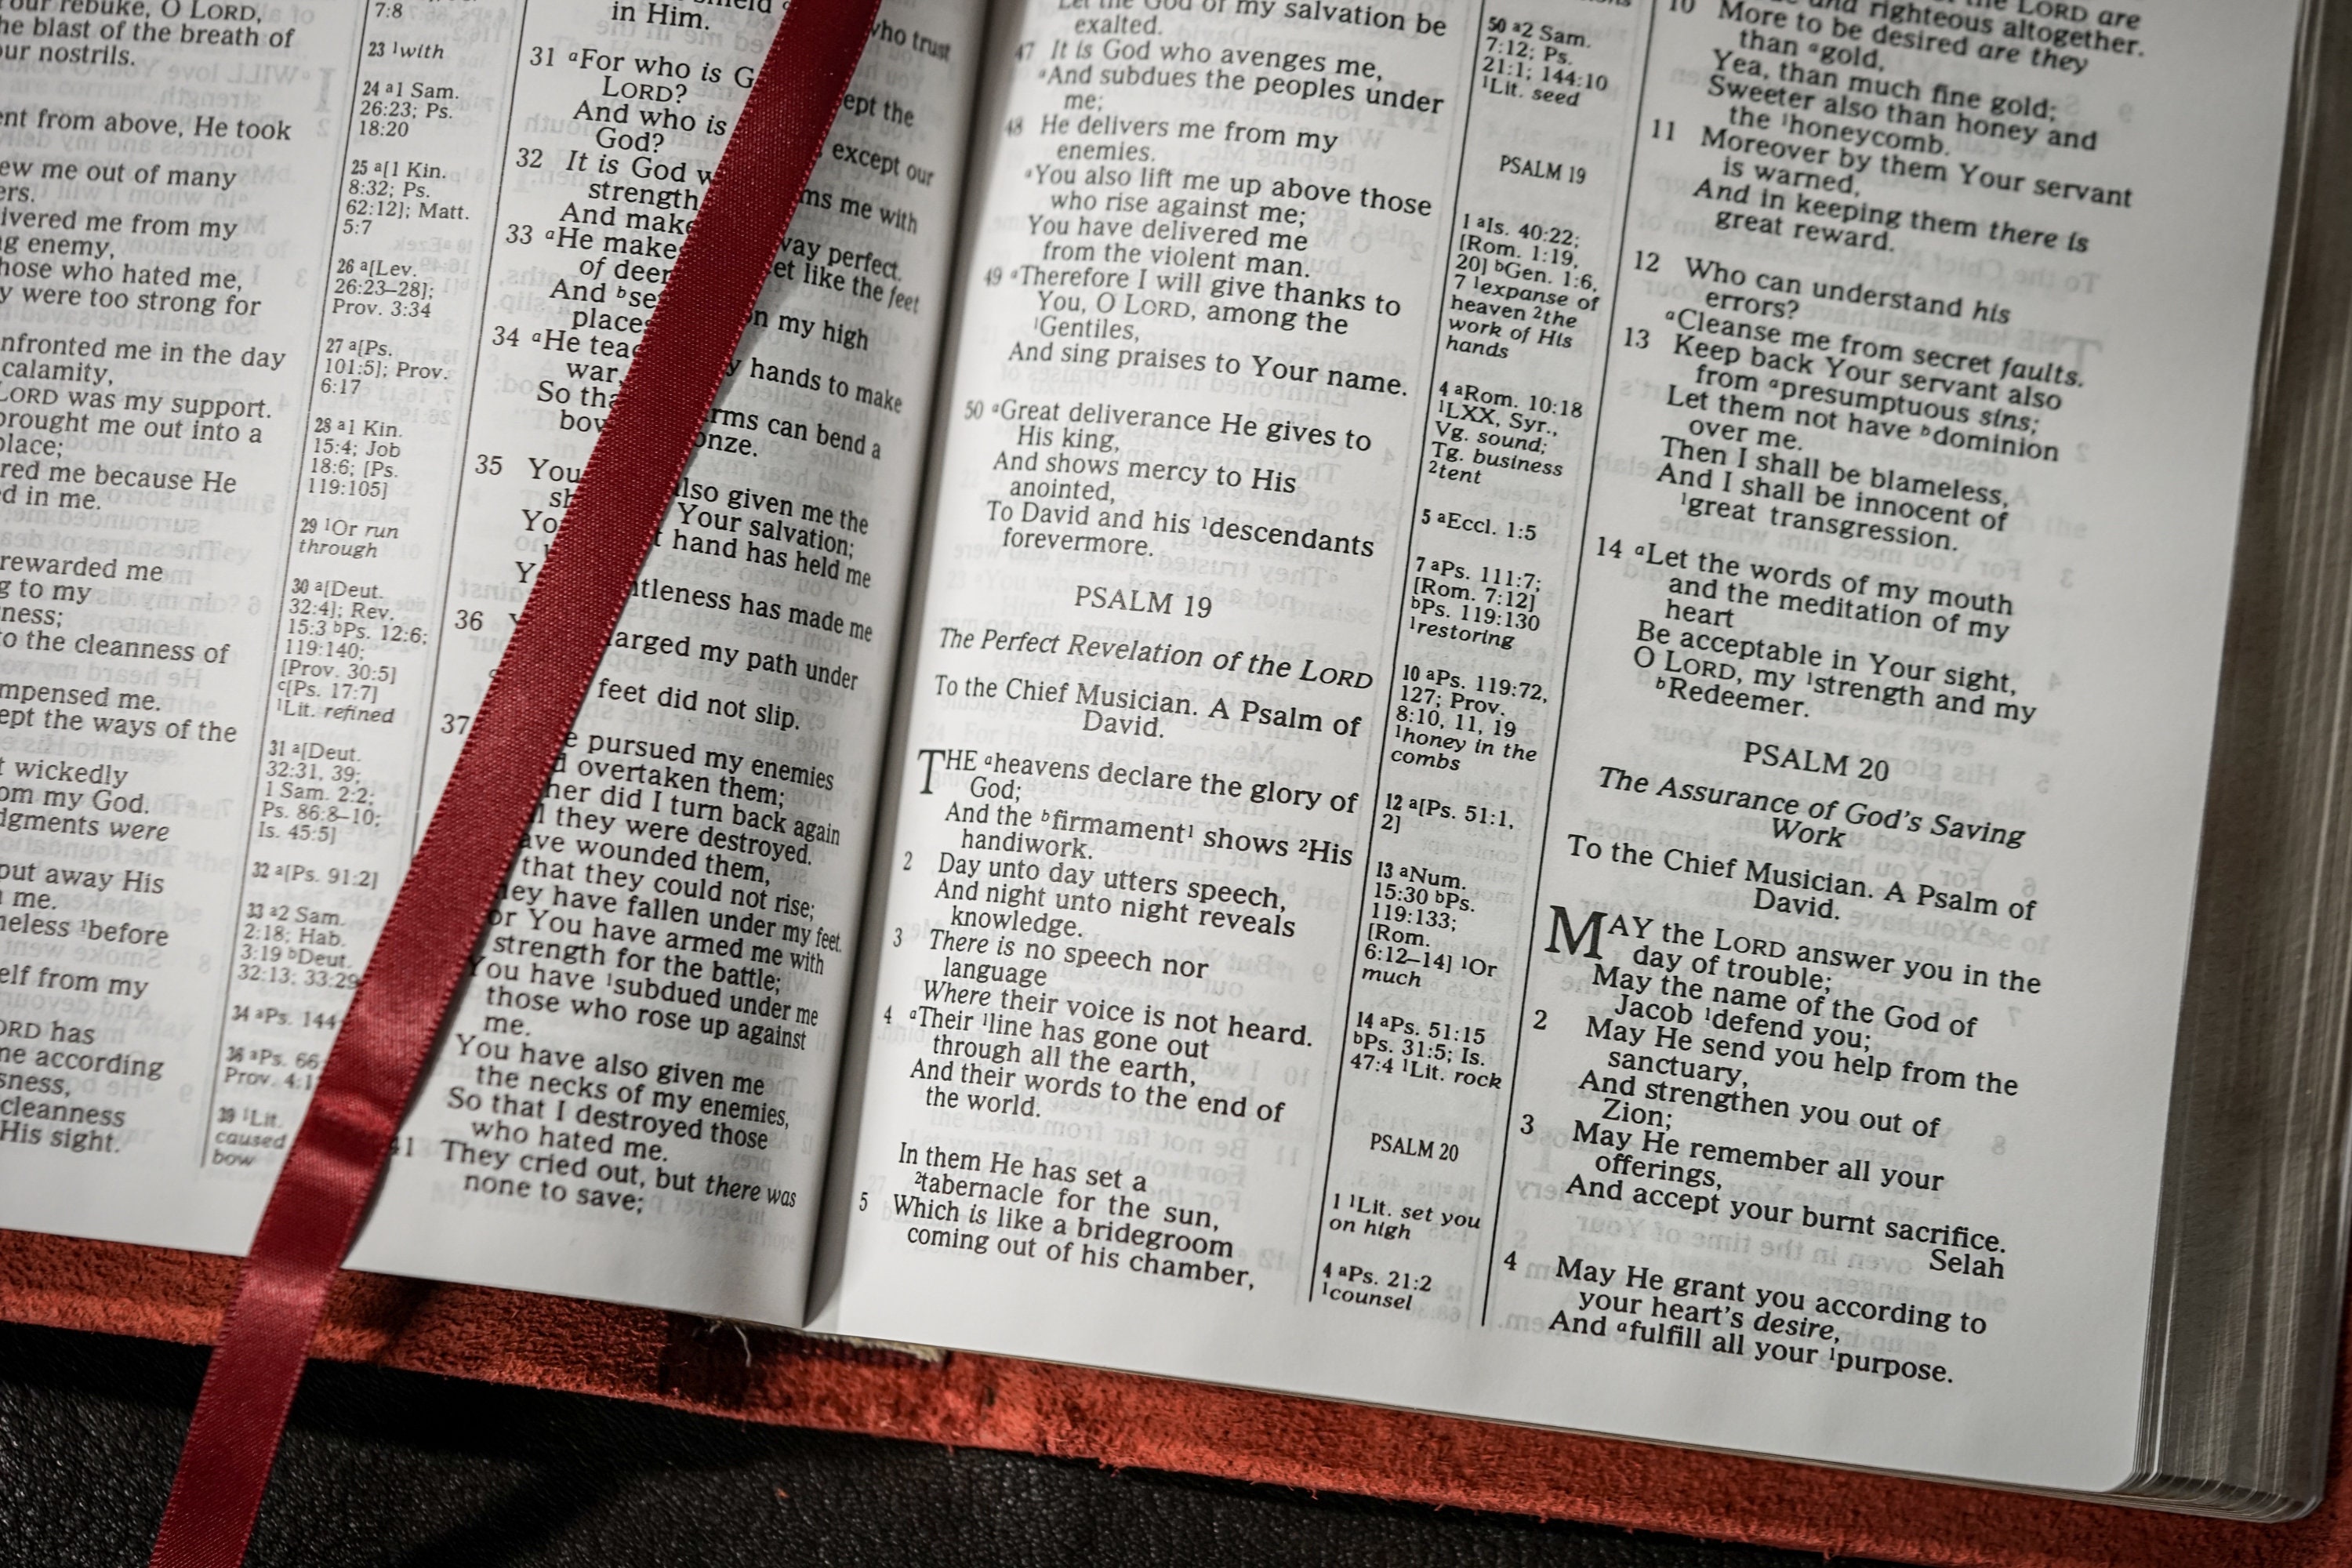 our rebuke, O LORD,
the blast of the breath of
our nostrils.
ent from above, He took
ew me out of many
ers.
ivered me from my
g enemy,
hose who hated me,
y were too strong for
nfronted me in the day
calamity,
LORD was my support.
brought me out into a
place;
red me because He
d in me.
rewarded me
g to my
ness;
to the cleanness of
mpensed me.
ept the ways of the
t wickedly
om my God.
dgments were
put away His
me.
meless ¹before
elf from my
ORD has
me according
sness,
cleanness
His sight.
7:8
23 ¹with
24 ª1 Sam.
26:23; Ps.
18:20
25 ª[1 Kin.
8:32; Ps.
62:12]; Matt.
5:7
26 ª[Lev.
26:23–28];
Prov. 3:34
27 ª[Ps.
101:5]; Prov.
6:17
28 ª1 Kin.
15:4; Job
18:6; [Ps.
119:105]
29 ¹Or run
through
30 ª[Deut.
32:4]; Rev.
15:3 ᵇPs. 12:6;
119:140;
[Prov. 30:5]
ᶜ[Ps. 17:7]
¹Lit. refined
31 ª[Deut.
32:31, 39;
1 Sam. 2:2;
Ps. 86:8–10;
Is. 45:5]
32 ª[Ps. 91:2]
33 ª2 Sam.
2:18; Hab.
3:19 ᵇDeut.
32:13; 33:29
34 ªPs. 144
36 ªPs. 66
Prov. 4:1
39 ¹Lit.
caused
bow
in Him. who trust
31 ªFor who is G ept the
LORD?
And who is , except our
God?
32 It is God w ms me with
strength,
And make way perfect.
33 ªHe make et like the feet
of deer
And ᵇse on my high
places
34 ªHe teac y hands to make
war,
So tha rms can bend a
bow onze.
35 You lso given me the
sh Your salvation;
Yo t hand has held me
Y ntleness has made me
36 Y arged my path under
feet did not slip.
37 e pursued my enemies
d overtaken them;
her did I turn back again
l they were destroyed.
ave wounded them,
that they could not rise;
hey have fallen under my feet.
or You have armed me with
strength for the battle;
You have ¹subdued under me
those who rose up against
me.
You have also given me
the necks of my enemies,
So that I destroyed those
who hated me.
41 They cried out, but there was
none to save;
Let the God of my salvation be
exalted.
47 It is God who avenges me,
ªAnd subdues the peoples under
me;
48 He delivers me from my
enemies.
ªYou also lift me up above those
who rise against me;
You have delivered me
from the violent man.
49 ªTherefore I will give thanks to
You, O LORD, among the
¹Gentiles,
And sing praises to Your name.
50 ªGreat deliverance He gives to
His king,
And shows mercy to His
anointed,
To David and his ¹descendants
forevermore.
PSALM 19
The Perfect Revelation of the LORD
To the Chief Musician. A Psalm of
David.
THE ªheavens declare the glory of
God;
And the ᵇfirmament¹ shows ²His
handiwork.
2 Day unto day utters speech,
And night unto night reveals
knowledge.
3 There is no speech nor
language
Where their voice is not heard.
4 ªTheir ¹line has gone out
through all the earth,
And their words to the end of
the world.
In them He has set a
²tabernacle for the sun,
5 Which is like a bridegroom
coming out of his chamber,
50 ª2 Sam.
7:12; Ps.
21:1; 144:10
¹Lit. seed
PSALM 19
1 ªIs. 40:22;
[Rom. 1:19,
20] ᵇGen. 1:6,
7 ¹expanse of
heaven ²the
work of His
hands
4 ªRom. 10:18
¹LXX, Syr.,
Vg. sound;
Tg. business
²tent
5 ªEccl. 1:5
7 ªPs. 111:7;
[Rom. 7:12]
ᵇPs. 119:130
¹restoring
10 ªPs. 119:72,
127; Prov.
8:10, 11, 19
¹honey in the
combs
12 ª[Ps. 51:1,
2]
13 ªNum.
15:30 ᵇPs.
119:133;
[Rom.
6:12–14] ¹Or
much
14 ªPs. 51:15
ᵇPs. 31:5; Is.
47:4 ¹Lit. rock
PSALM 20
1 ¹Lit. set you
on high
4 ªPs. 21:2
¹counsel
the LORD are
and righteous altogether.
10 More to be desired are they
than ªgold,
Yea, than much fine gold;
Sweeter also than honey and
the ¹honeycomb.
11 Moreover by them Your servant
is warned,
And in keeping them there is
great reward.
12 Who can understand his
errors?
ªCleanse me from secret faults.
13 Keep back Your servant also
from ªpresumptuous sins;
Let them not have ᵇdominion
over me.
Then I shall be blameless,
And I shall be innocent of
¹great transgression.
14 ªLet the words of my mouth
and the meditation of my
heart
Be acceptable in Your sight,
O LORD, my ¹strength and my
ᵇRedeemer.
PSALM 20
The Assurance of God's Saving
Work
To the Chief Musician. A Psalm of
David.
MAY the LORD answer you in the
day of trouble;
May the name of the God of
Jacob ¹defend you;
2 May He send you help from the
sanctuary,
And strengthen you out of
Zion;
3 May He remember all your
offerings,
And accept your burnt sacrifice.
Selah
4 May He grant you according to
your heart's desire,
And ªfulfill all your ¹purpose.